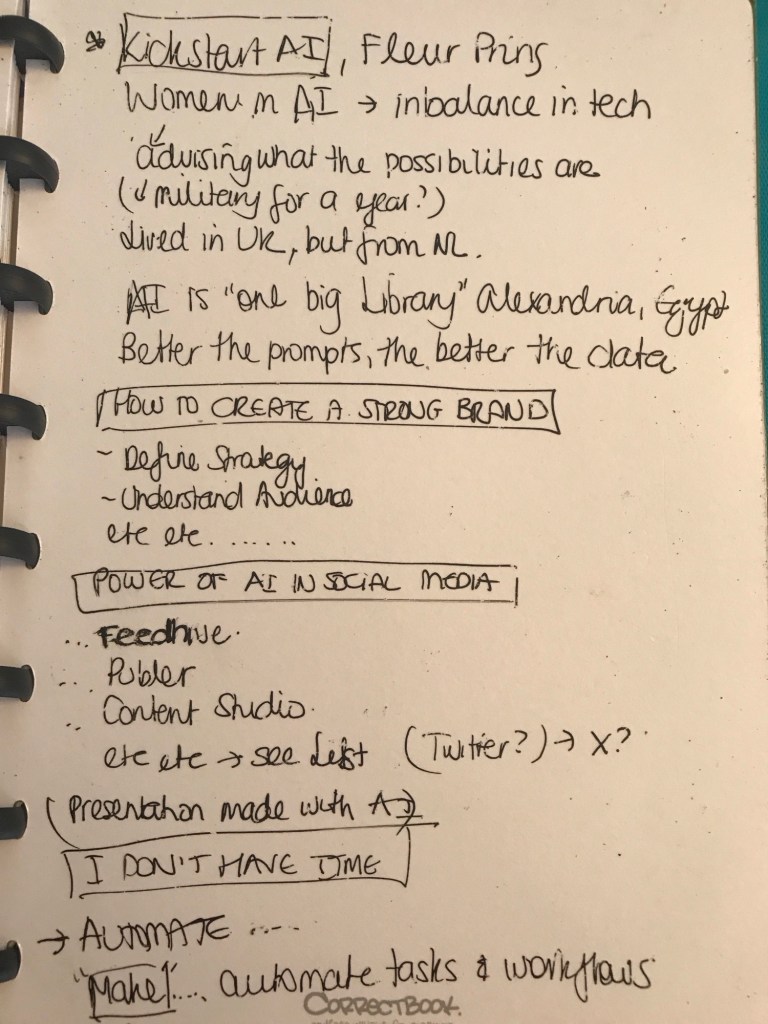 Kickstart AI, Fleur Prins
Women in AI → inbalance in tech
advising what the possibilities are
(↳ military for a year?)
Lived in UK, but from NL.
AI is "one big Library" Alexandria, Egypt
Better the prompts, the better the data
HOW TO CREATE A STRONG BRAND
~ Define Strategy
~ Understand Audience
etc etc. ......
POWER OF AI IN SOCIAL MEDIA
... Feedhive.
... Publer
.. Content Studio.
etc etc → see List (Twitter?) → X?
(Presentation made with AI)
I DON'T HAVE TIME
→ AUTOMATE .....
"Make".... automate tasks & workflows
CORRECTBOOK.